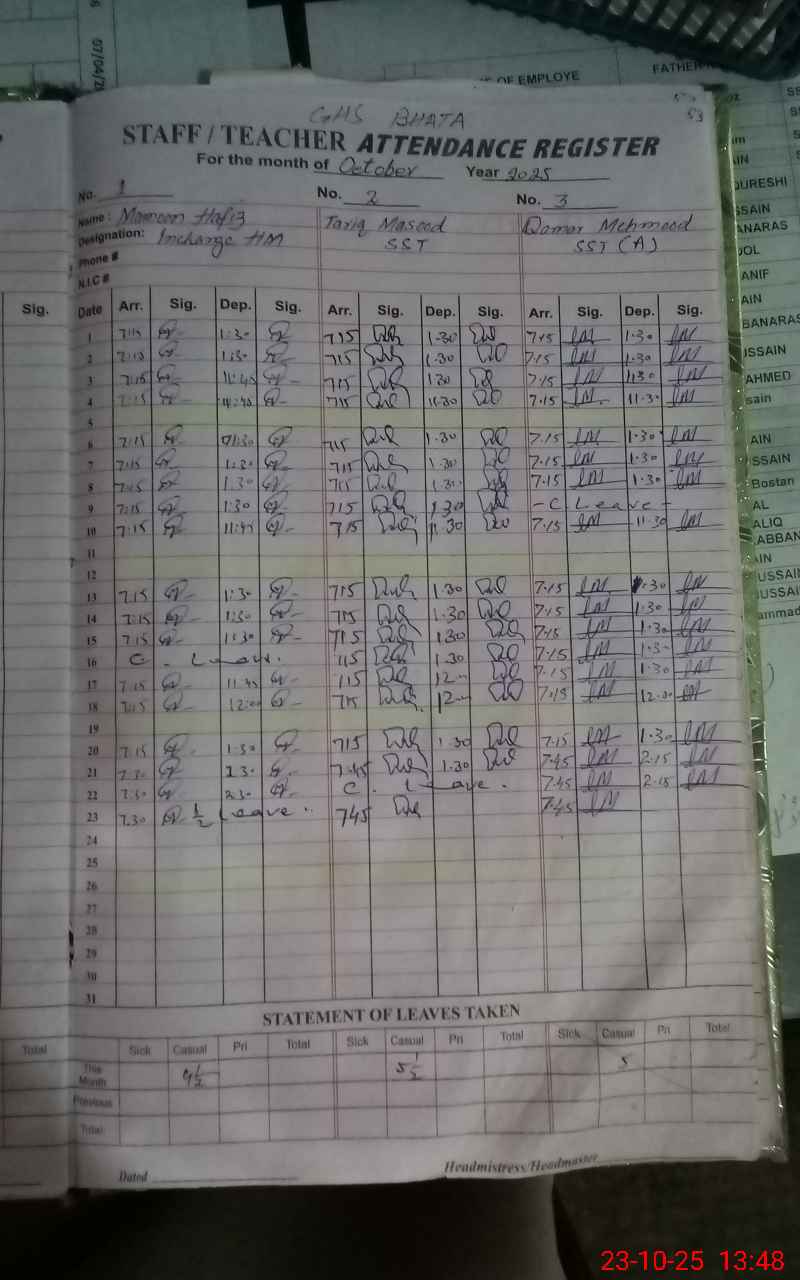 07/04/2
OF EMPLOYE
FATHER
GHS BHATA
53
STAFF / TEACHER ATTENDANCE REGISTER
For the month of October Year 2025
No. 1 No. 2 No. 3
Name: Hafiz Tariq Masood Qamar Mehmood
Designation: Incharge HM SST SST (A)
Phone #
N.I.C #
Sig. Date Arr. Sig. Dep. Sig. Arr. Sig. Dep. Sig. Arr. Sig. Dep. Sig.
1 7:15 1:30 715 1.30 7.15 1.30
2 7:15 1:30 715 1.30 7.15 1.30
3 7:15 11:45 715 130 7.15 1130
4 7:15 11:45 715 11.30 7.15 11.30
5
6 7:15 01:30 715 1.30 7.15 1.30
7 7:15 1:30 715 1.30 7.15 1.30
8 7:15 1:30 715 1.30 7.15 1.30
9 7:15 1:30 715 1.30 - C Leave -
10 7:15 11:45 715 11.30 7.15 11.30
11
12
13 7.15 1:30 715 1.30 7.15 1.30
14 7:15 1:30 715 1.30 7.15 1.30
15 7.15 1:30 715 1.30 7.15 1.30
16 C. Leave. 715 1.30 7.15 1.30
17 7.15 11.45 715 12 7.15 1.30
18 7:15 12:00 715 12 7.15 12.30
19
20 7.15 1.30 715 1.30 7.15 1.30
21 7.30 2.30 7.45 1.30 7.45 2.15
22 7.30 2.30 C. Leave. 7.45 2.15
23 7.30 1/2 Leave. 745 7.45
24
25
26
27
28
29
30
31
STATEMENT OF LEAVES TAKEN
Total Sick Casual Pri Total Sick Casual Pri Total Sick Casual Pri Total
This Month 5 1/2 5
Previous
Total
Dated Headmistress/Headmaster
QURESHI
SSAIN
ANARAS
ANIF
AIN
BANARAS
USSAIN
AHMED
sain
AIN
SSAIN
Bostan
AL
ALIQ
ABBAN
AIN
USSAIN
USSAI
ammad
23-10-25 13:48